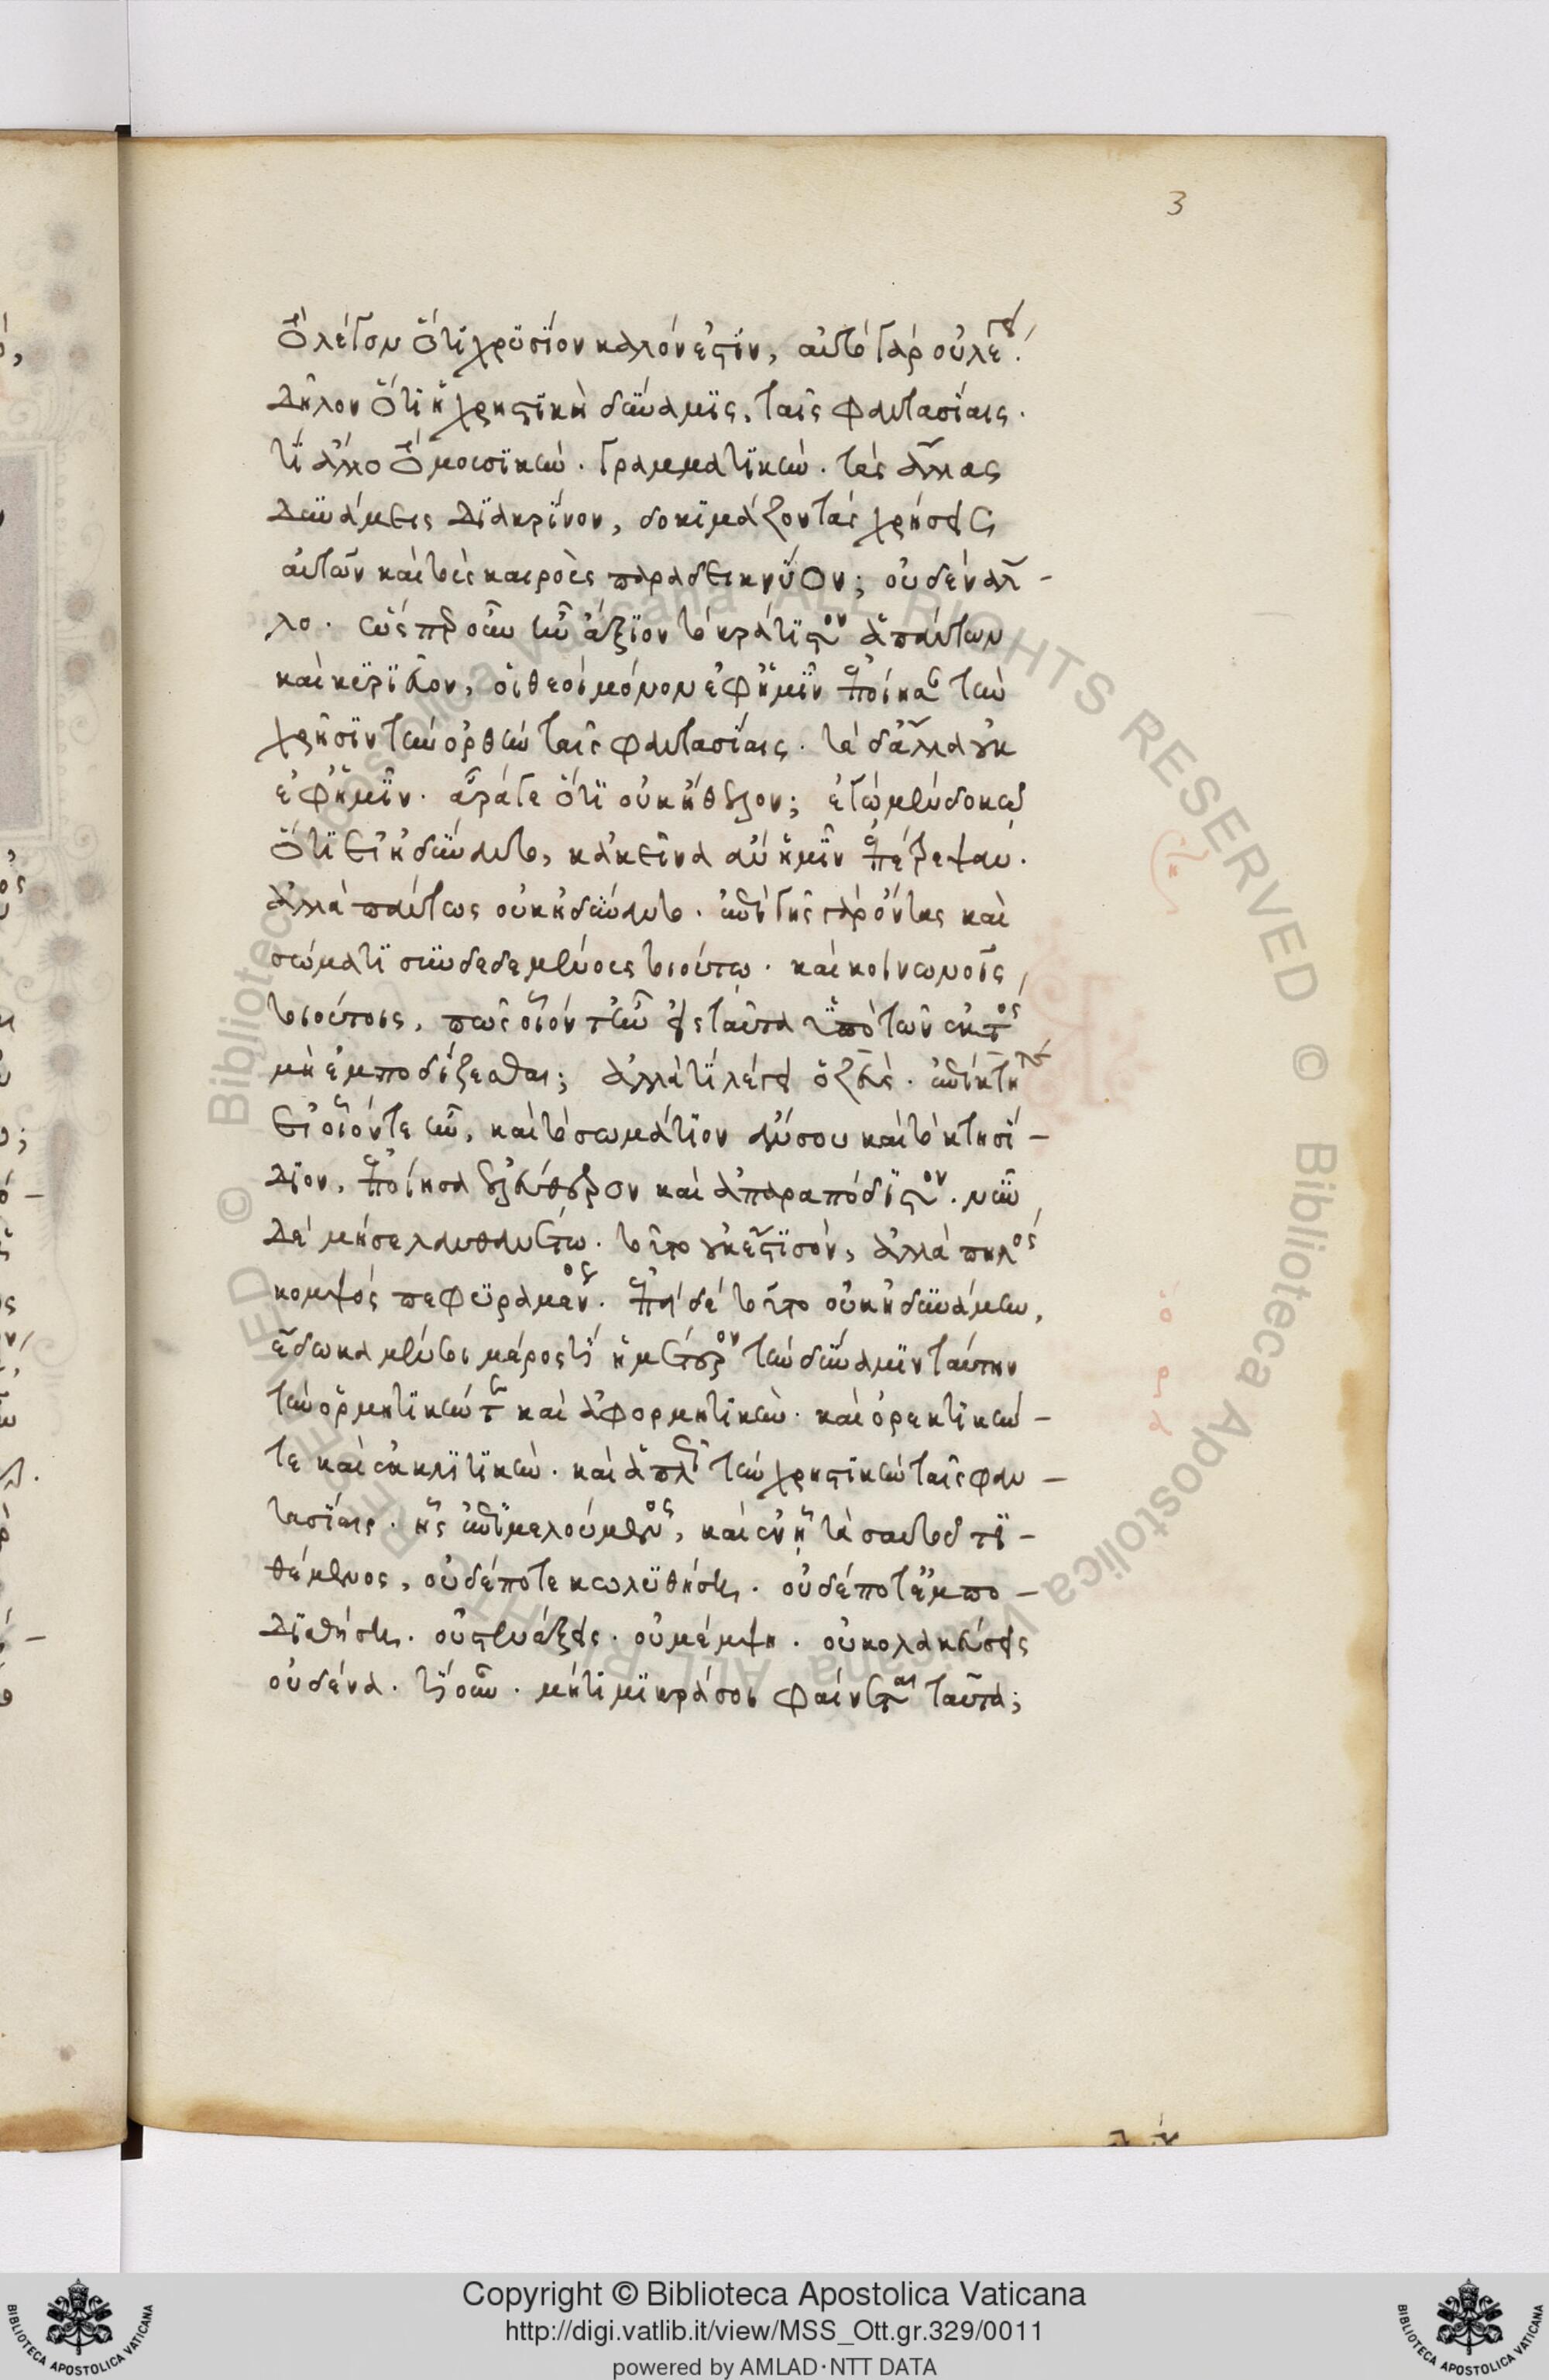 3
ὁ λέγον ὅτι χρυσίον καλόν ἐστιν, αὐτὸ γὰρ οὐ λέγει.
δῆλον ὅτι ἡ χρηστικὴ δύναμις, ταῖς φαντασίαις.
τί ἄλλο ὁ μουσικὴν. γραμματικὴν. τὰς ἄλλας
δυνάμεις διακρίνον, δοκιμάζον τὰς χρήσεις
αὐτῶν καὶ τοὺς καιροὺς παραδεικνύον; οὐδὲν ἄλ-
λο. ὥσπερ οὖν ἦν ἄξιον τὸ κράτιστον ἁπάντων
καὶ κυριεῦον, οἱ θεοὶ μόνον ἐφ' ἡμῖν ἐποίησαν τὴν
χρῆσιν τὴν ὀρθὴν ταῖς φαντασίαις. τὰ δ' ἄλλα οὐκ
ἐφ' ἡμῖν. ἆρά γε ὅτι οὐκ ἤθελον; ἐγὼ μὲν δοκῶ
ὅτι εἰ ἠδύναντο, κἀκεῖνα ἂν ἡμῖν ἐπέτρεψαν.
ἀλλὰ πάντως οὐκ ἠδύναντο. ἐπὶ γῆς γὰρ ὄντας καὶ
σώματι συνδεδεμένους τοιούτῳ. καὶ κοινωνοῖς
τοιούτοις, πῶς οἷόν τ' ἦν εἰς ταῦτα ὑπὸ τῶν ἐκτὸς
μὴ ἐμποδίζεσθαι; ἀλλὰ τί λέγει ὁ ζεύς. ἐπίκτητε
εἰ οἷόν τε ἦν, καὶ τὸ σωμάτιον ἄν σου καὶ τὸ κτησί-
διον, ἐποίησα ἐλεύθερον καὶ ἀπαραπόδιστον. νῦν
δέ μή σε λανθανέτω. τοῦτο οὐκ ἔστι σόν, ἀλλὰ πηλὸς
κομψός πεφυραμένος. ἐπεὶ δὲ τοῦτο οὐκ ἠδυνάμην,
ἔδωκα μέν σοι μέρος τι ἡμέτερον τὴν δύναμιν ταύτην
τὴν ὁρμητικήν τε καὶ ἀφορμητικὴν. καὶ ὀρεκτικήν-
τε καὶ ἐκκλιτικὴν. καὶ ἁπλῶς τὴν χρηστικὴν ταῖς φαν-
τασίαις. ἧς ἐπιμελούμενος, καὶ ἐν ᾗ τὰ σαυτοῦ τι-
θέμενος, οὐδέποτε κωλυθήσῃ. οὐδέποτ' ἐμπο-
διθήσῃ. οὐ στενάξεις. οὐ μέμψῃ. οὐ κολακεύσεις
οὐδένα. τί οὖν. μήτι μικρά σοι φαίνεται ταῦτα;
Copyright © Biblioteca Apostolica Vaticana
http://digi.vatlib.it/view/MSS_Ott.gr.329/0011
powered by AMLAD·NTT DATA